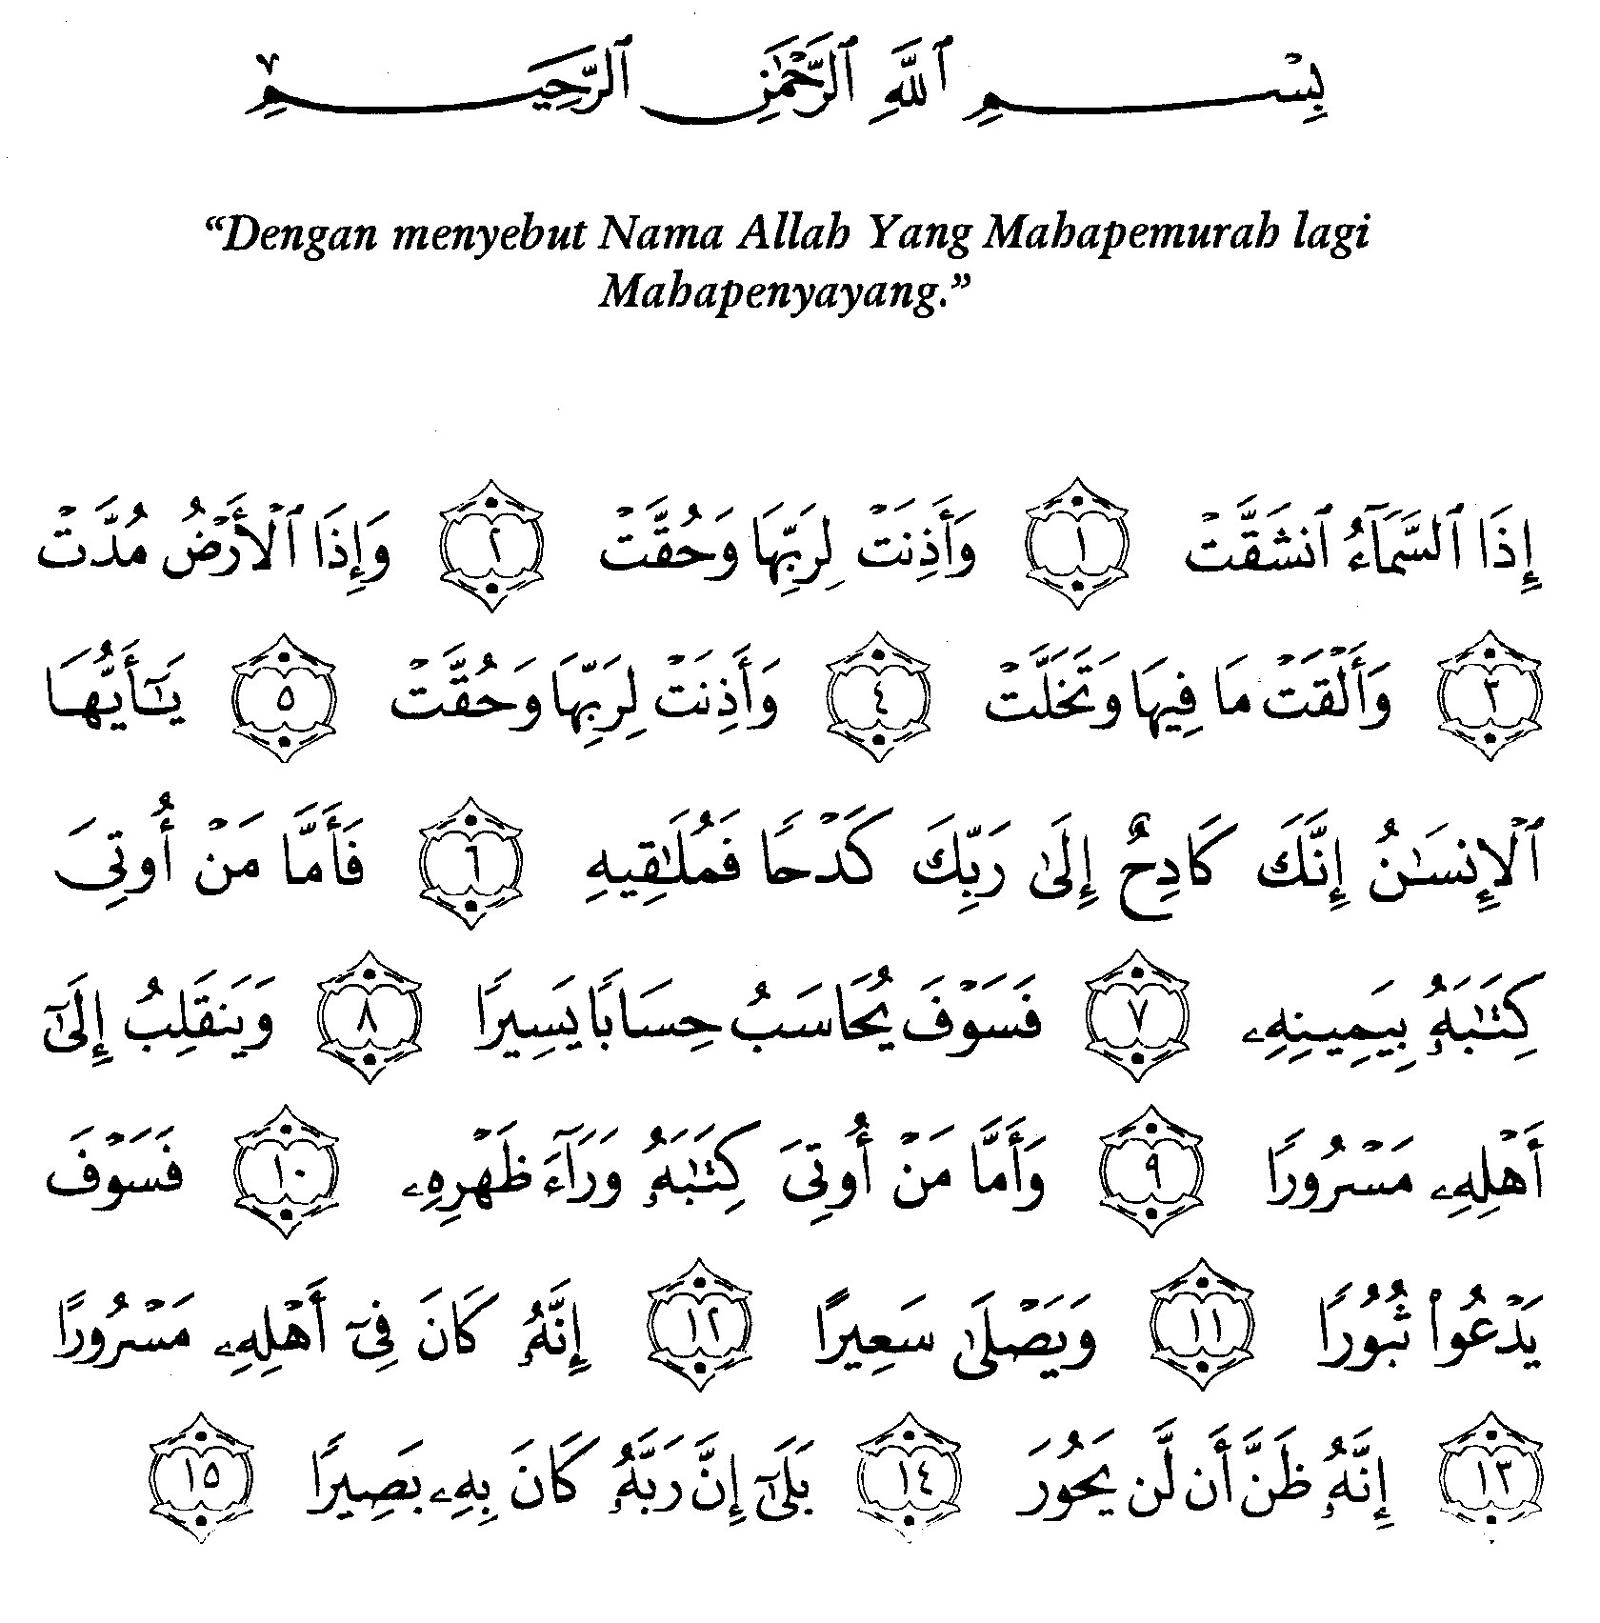 بِسْمِ ٱللَّهِ ٱلرَّحْمَٰنِ ٱلرَّحِيمِ
“Dengan menyebut Nama Allah Yang Mahapemurah lagi
Mahapenyayang.”
إِذَا ٱلسَّمَآءُ ٱنشَقَّتْ ١ وَأَذِنَتْ لِرَبِّهَا وَحُقَّتْ ٢ وَإِذَا ٱلْأَرْضُ مُدَّتْ
٣ وَأَلْقَتْ مَا فِيهَا وَتَخَلَّتْ ٤ وَأَذِنَتْ لِرَبِّهَا وَحُقَّتْ ٥ يَٰٓأَيُّهَا
ٱلْإِنسَٰنُ إِنَّكَ كَادِحٌ إِلَىٰ رَبِّكَ كَدْحًا فَمُلَٰقِيهِ ٦ فَأَمَّا مَنْ أُوتِىَ
كِتَٰبَهُۥ بِيَمِينِهِۦ ٧ فَسَوْفَ يُحَاسَبُ حِسَابًا يَسِيرًا ٨ وَيَنقَلِبُ إِلَىٰٓ
أَهْلِهِۦ مَسْرُورًا ٩ وَأَمَّا مَنْ أُوتِىَ كِتَٰبَهُۥ وَرَآءَ ظَهْرِهِۦ ١٠ فَسَوْفَ
يَدْعُوا۟ ثُبُورًا ١١ وَيَصْلَىٰ سَعِيرًا ١٢ إِنَّهُۥ كَانَ فِىٓ أَهْلِهِۦ مَسْرُورًا
١٣ إِنَّهُۥ ظَنَّ أَن لَّن يَحُورَ ١٤ بَلَىٰٓ إِنَّ رَبَّهُۥ كَانَ بِهِۦ بَصِيرًا ١٥